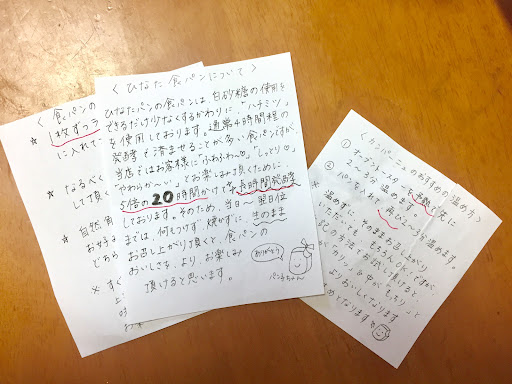 〈食パンの
★ 1枚ずつラ
に入れて
★ なるべく
して頂く
★ 自然
お好み
どちら
※ すぐ
上
〈ひなた食パンについて〉
ひなたパンの食パンは、白砂糖の使用を
できるだけ少なくするかわりに"ハチミツ"
を使用しております。通常4時間程の
発酵で済ませることが多い食パンですが、
当店ではお客様に"ふわふわ〜♡""しっとり♡"
"やわらか〜い。"とお楽しみ頂くために、
5倍の20時間かけて長時間発酵
しております。そのため、当日〜翌日位
までは、何もつけず、焼かずに、生のまま
お召し上がり頂くと、食パンの
おいしさを、より、お楽しみ
頂けると思います。
ありがとう
パン子ちゃん
〈カンパーニュのおすすめの温め方〉
① オーブントースターを予熱
2〜3分温めます。
② パンを入れて、再び2〜3分温めます。
※ 温めずに、そのままお召し上がり
ただいても、もちろんOK!ですが、
の方法で、お試し頂けると
カリッ、中が"もっちり"
よりおいしくなります
めとなります